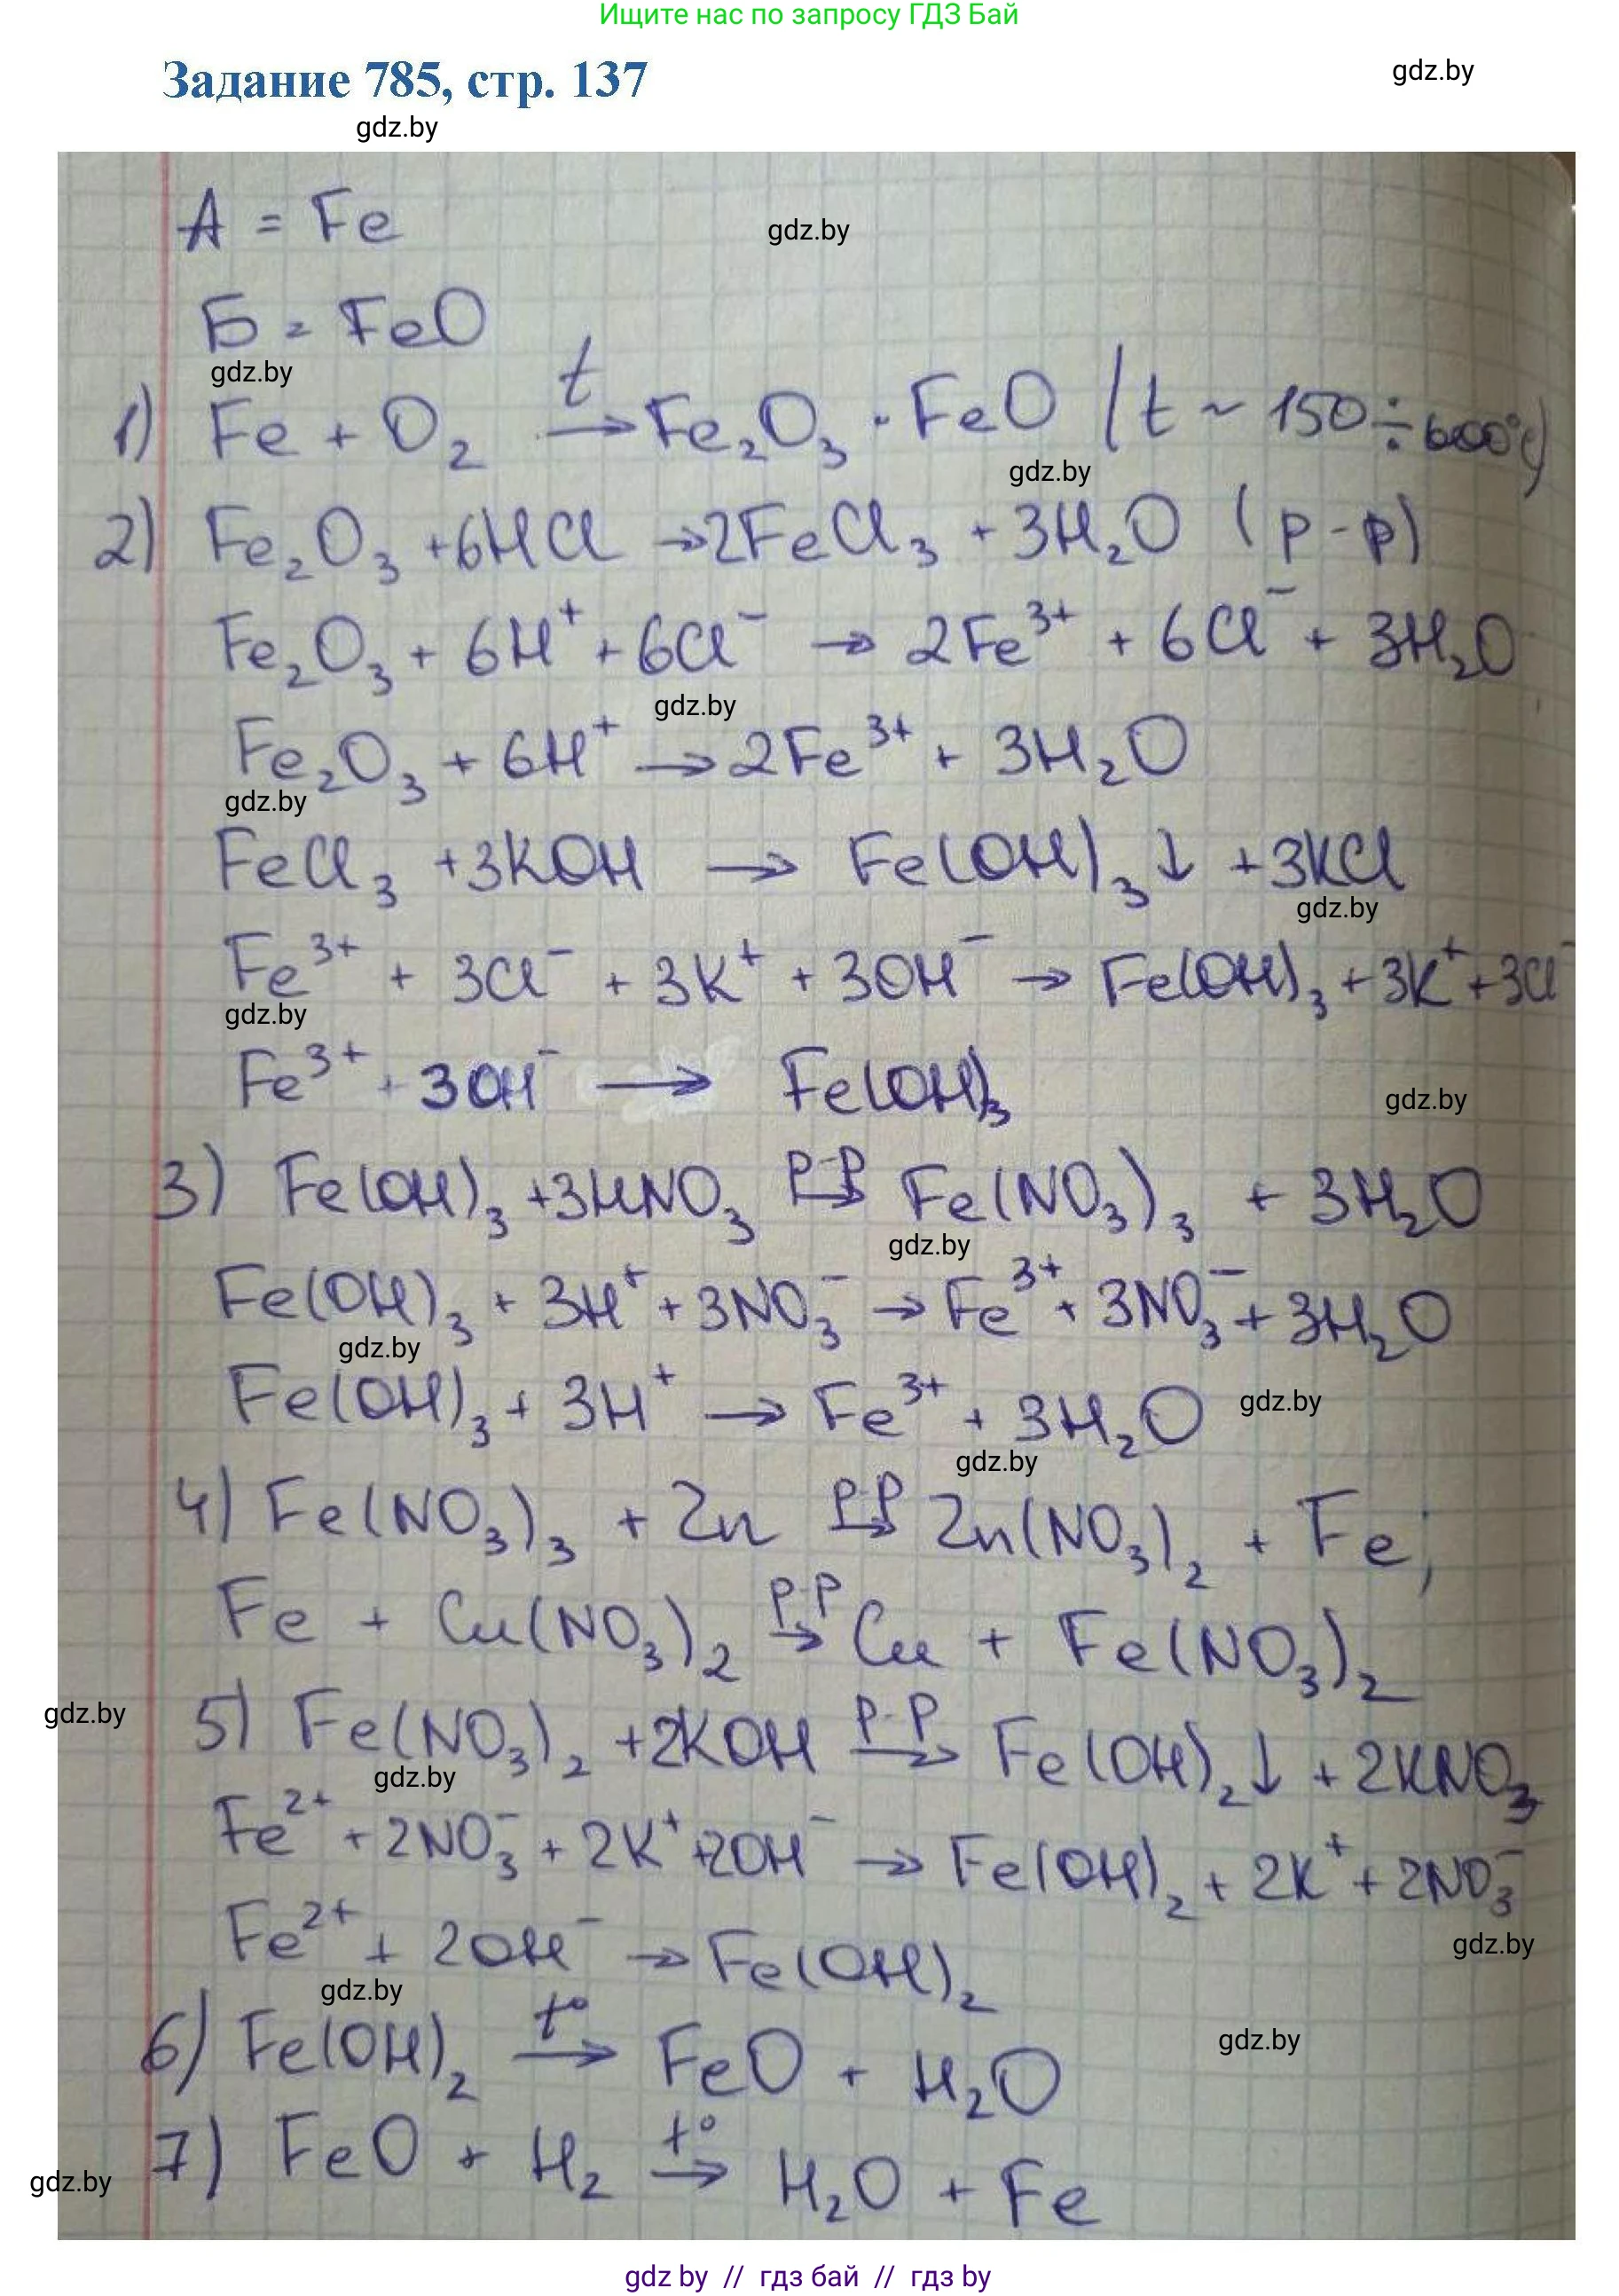 Ищите нас по запросу ГДЗ Бай
Задание 785, стр. 137
gdz.by
gdz.by
А = Fe
gdz.by
Б = FeO
gdz.by
1) Fe + O₂ t→ Fe₂O₃ · FeO (t ~ 150÷600°C)
gdz.by
2) Fe₂O₃ + 6HCl → 2FeCl₃ + 3H₂O (р-р)
Fe₂O₃ + 6H⁺ + 6Cl⁻ → 2Fe³⁺ + 6Cl⁻ + 3H₂O
gdz.by
Fe₂O₃ + 6H⁺ → 2Fe³⁺ + 3H₂O
gdz.by
FeCl₃ + 3KOH → Fe(OH)₃↓ + 3KCl
gdz.by
Fe³⁺ + 3Cl⁻ + 3K⁺ + 3OH⁻ → Fe(OH)₃ + 3K⁺ + 3Cl⁻
gdz.by
Fe³⁺ + 3OH⁻ → Fe(OH)₃
gdz.by
3) Fe(OH)₃ + 3HNO₃ р-р→ Fe(NO₃)₃ + 3H₂O
gdz.by
Fe(OH)₃ + 3H⁺ + 3NO₃⁻ → Fe³⁺ + 3NO₃⁻ + 3H₂O
gdz.by
Fe(OH)₃ + 3H⁺ → Fe³⁺ + 3H₂O
gdz.by
gdz.by
4) Fe(NO₃)₃ + Zn р-р→ Zn(NO₃)₂ + Fe;
Fe + Cu(NO₃)₂ р-р→ Cu + Fe(NO₃)₂
gdz.by
5) Fe(NO₃)₂ + 2KOH р-р→ Fe(OH)₂↓ + 2KNO₃
gdz.by
Fe²⁺ + 2NO₃⁻ + 2K⁺ + 2OH⁻ → Fe(OH)₂ + 2K⁺ + 2NO₃⁻
gdz.by
Fe²⁺ + 2OH⁻ → Fe(OH)₂
gdz.by
6) Fe(OH)₂ t°→ FeO + H₂O
gdz.by
7) FeO + H₂ t°→ H₂O + Fe
gdz.by
gdz by // гдз бай // гдз by